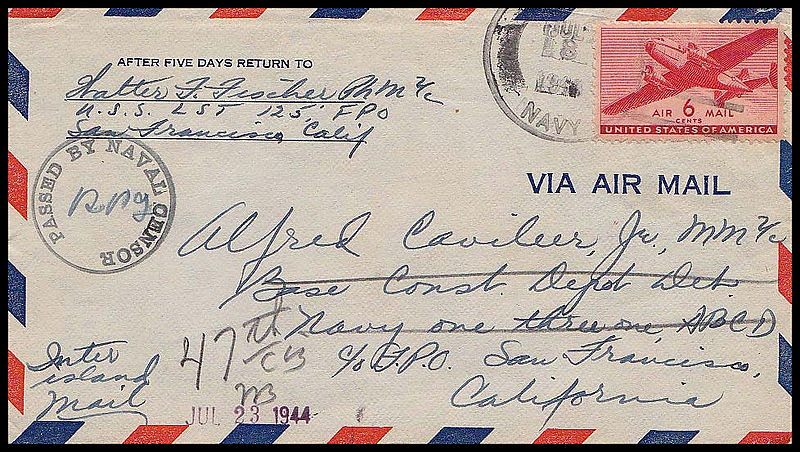 AFTER FIVE DAYS RETURN TO
Walter F. Fischer PhM 2/c
U.S.S. LST 125, FPO
San Francisco, Calif
JUL
18
NAVY
AIR 6 MAIL
CENTS
UNITED STATES OF AMERICA
PASSED BY NAVAL CENSOR
VIA AIR MAIL
Alfred Cavileer, Jr., MM 2/c
Base Const. Depot Det.
Navy one three one, ABCD
c/o F.P.O. San Francisco,
California
47th
CB
Inter
island
Mail
JUL 23 1944